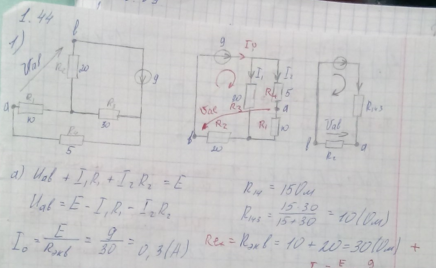 1.44
1)
b
Uab
20
9
a
R1
10
R2
20
5
9
I0
I1
I1
20
R3
R4
5
a
Uab
R2
R1
10
b
20
Uab
b
a
R2
a) Uab + I1R1 + I2R2 = E
Uab = E - I1R1 - I2R2
I0 = E/Rэкв = 9/30 = 0,3 (A)
R14 = 15 Ом
R143 = 15·30/15+30 = 10 (Ом)
Rэкв = 10 + 20 = 30 (Ом) +